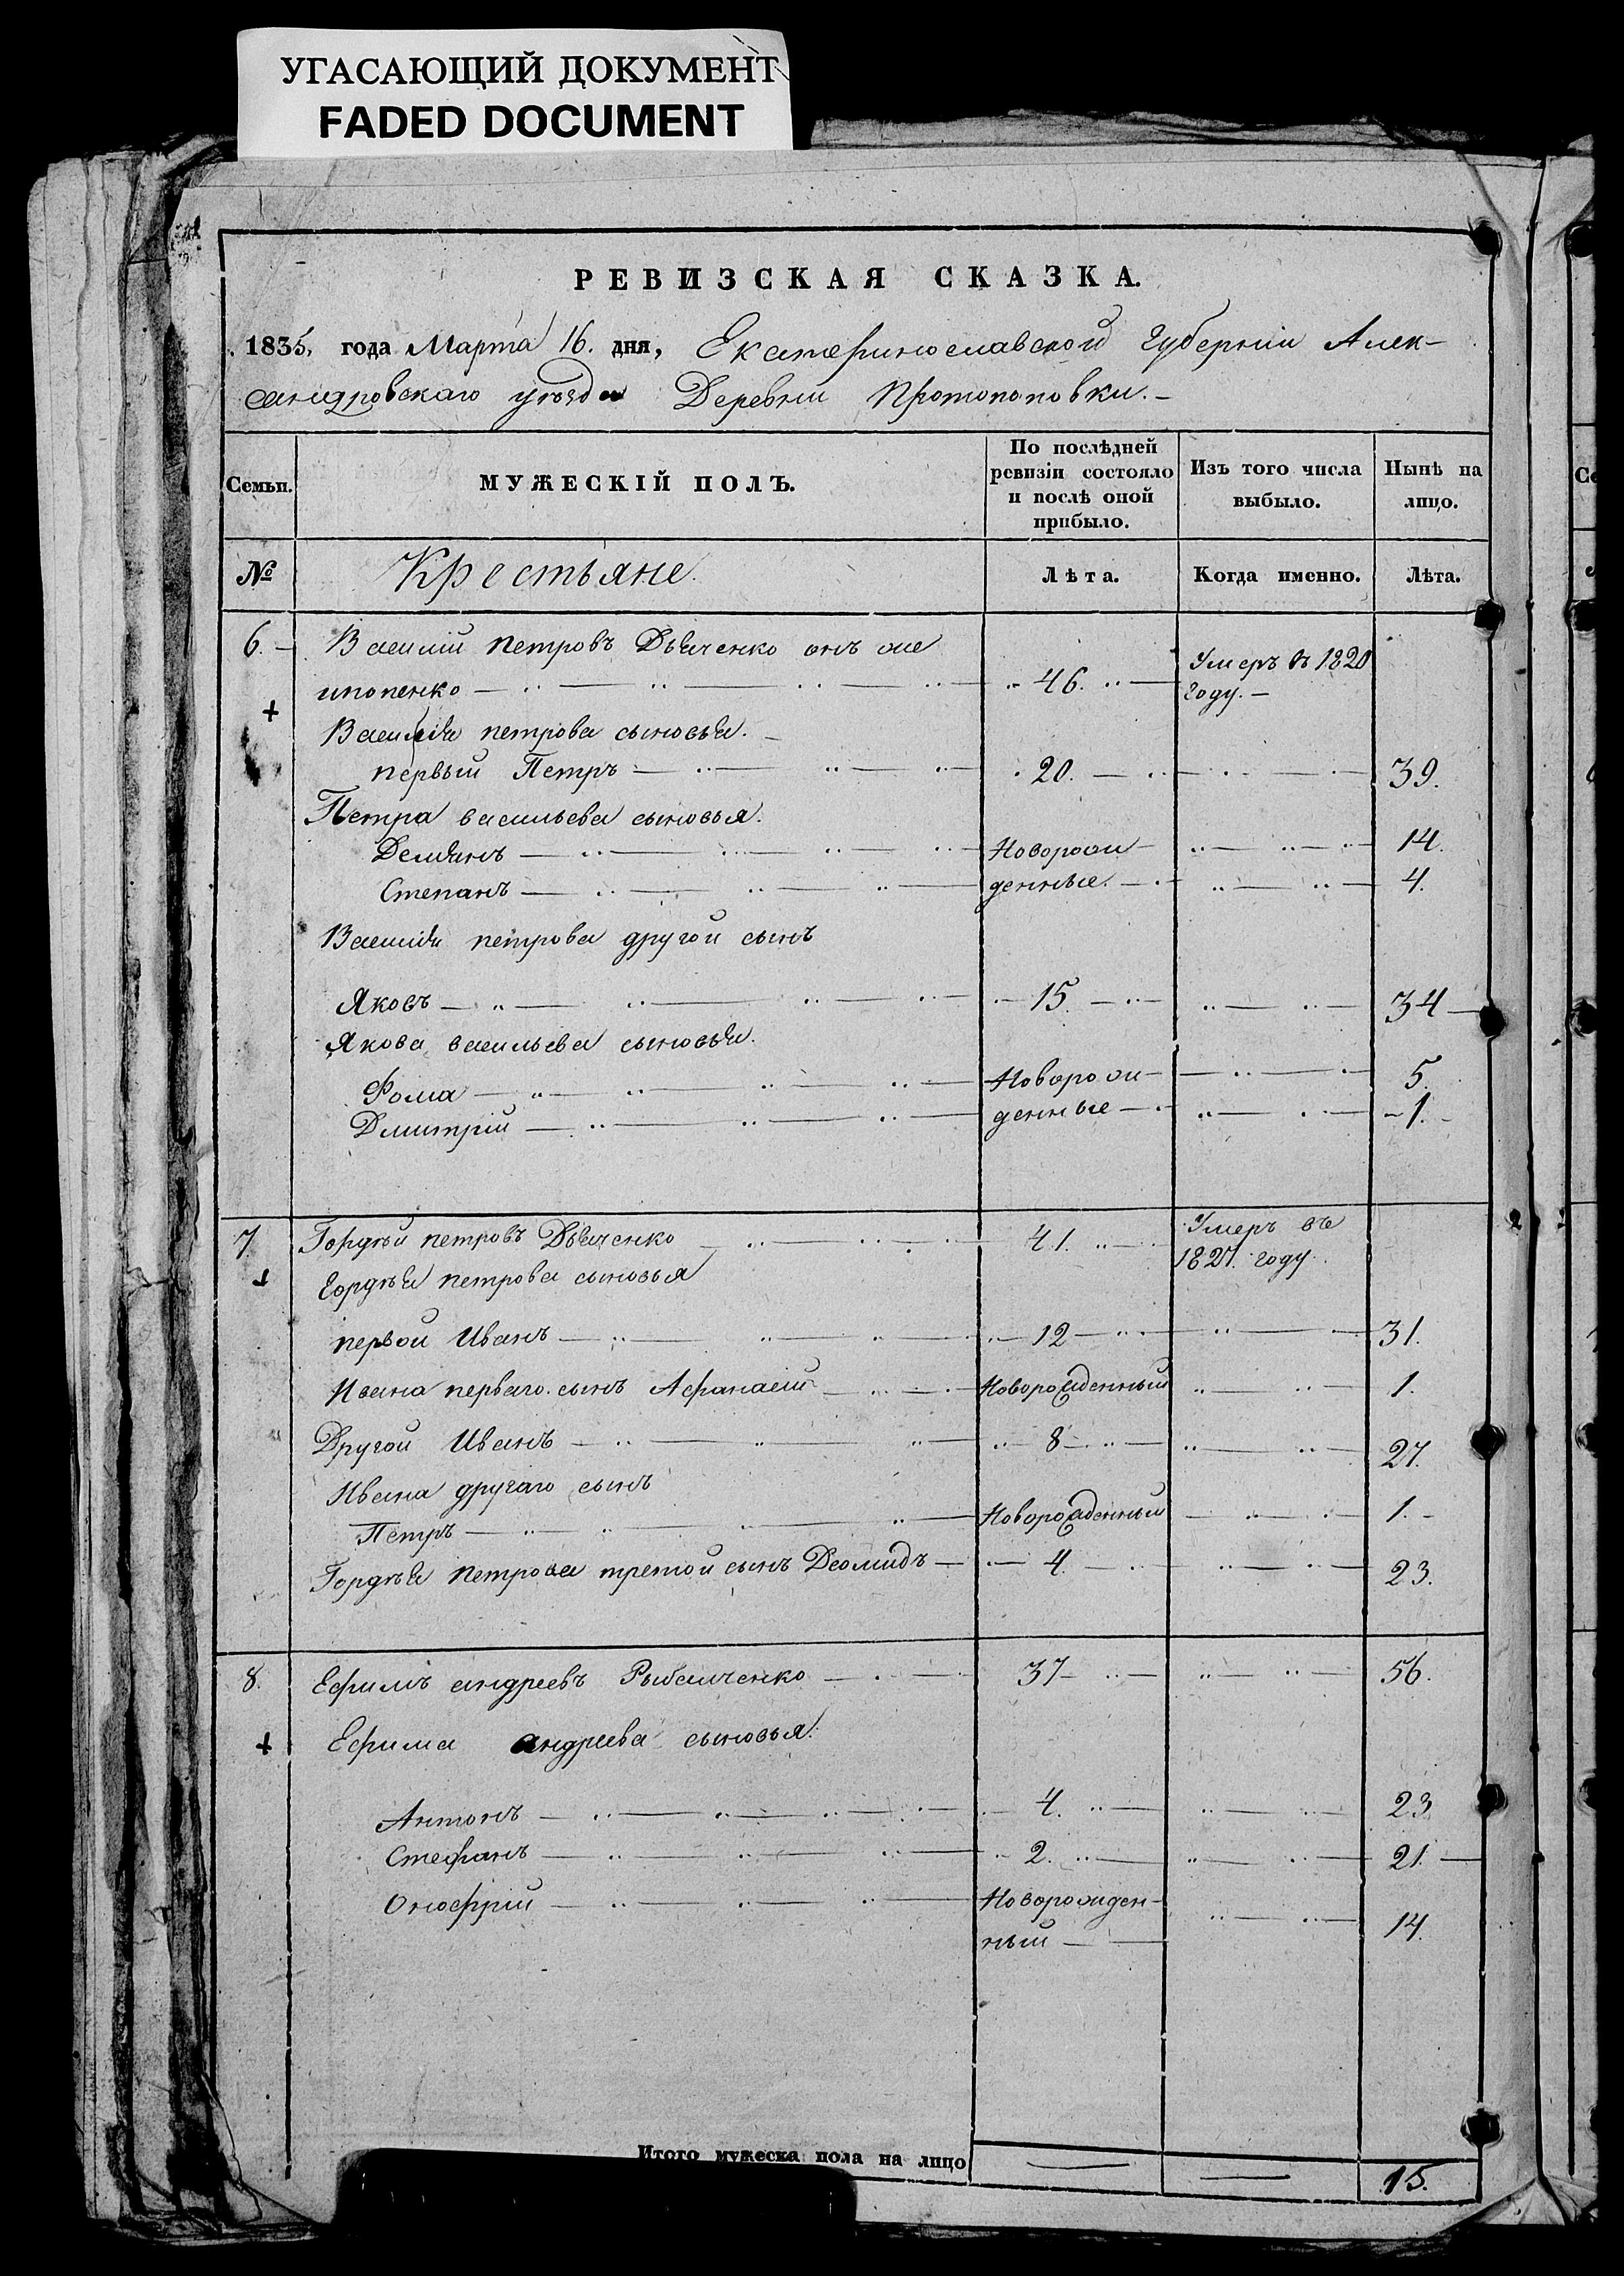 УГАСАЮЩИЙ ДОКУМЕНТ
FADED DOCUMENT
РЕВИЗСКАЯ СКАЗКА.
1835, года Марта 16. дня, Екатеринославской Губернии Алек-
сандровскаго уѣзда Деревни Протопоповки.-
Семьи. МУЖЕСКІЙ ПОЛЪ. По послѣдней ревизіи состояло и послѣ оной прибыло. Изъ того числа выбыло. Нынѣ на лицо.
№ Крестьяне. Лѣта. Когда именно. Лѣта.
6. Василій петровъ Дьяченко онъ же
ипопенко 46. Умеръ въ 1820 году.
Василія петрова сыновья.
первый Петръ 20. 39.
Петра васильева сыновья.
Демянъ Новорож- 14.
Степанъ денные. 4.
Василія петрова другой сынъ
Яковъ 15. 34
Якова васильева сыновья.
Фома Новорож- 5.
Дмитрій денные 1.
7. Гордѣй петровъ Дьяченко 41. Умеръ въ 1827. году.
Гордѣя петрова сыновья
первой Иванъ 12 31.
Ивана перваго сынъ Афанасій Новорожденный 1.
Другой Иванъ 8 27.
Ивана другаго сынъ
Петръ Новорожденный 1.
Гордѣя Петрова третой сынъ Деомидъ 4. 23.
8. Ефимъ андреевъ Рыбалченко 37 56.
Ефима андреева сыновья.
Антонъ 4. 23
Стефанъ 2. 21.
Онюфрій Новорожден-
ный 14.
Итого мужеска пола на лицо 15.